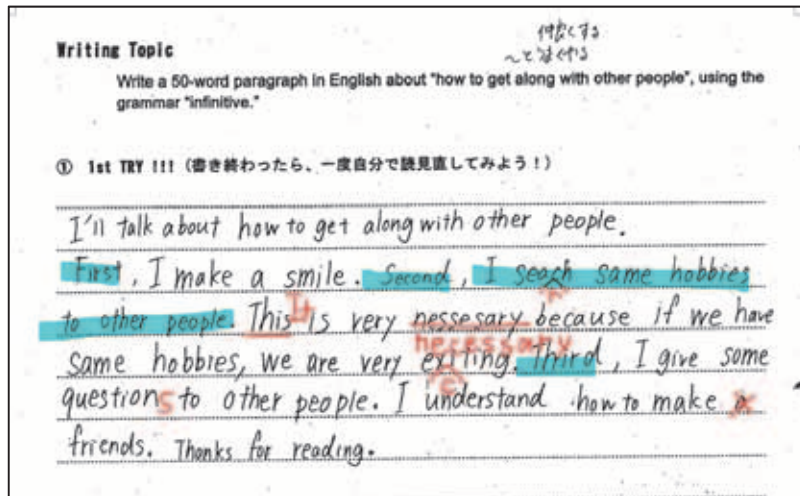 仲良くする
Writing Topic
Write a 50-word paragraph in English about "how to get along with other people", using the
grammar "infinitive."
① 1st TRY !!! (書き終わったら、一度自分で読見直してみよう!)
I'll talk about how to get along with other people.
First, I make a smile. Second, I seach same hobbies
to other people. This It is very nessesary because if we have
necessary
same hobbies, we are very exiting. Third, I give some
c
questions to other people. I understand how to make a
friends. Thanks for reading.